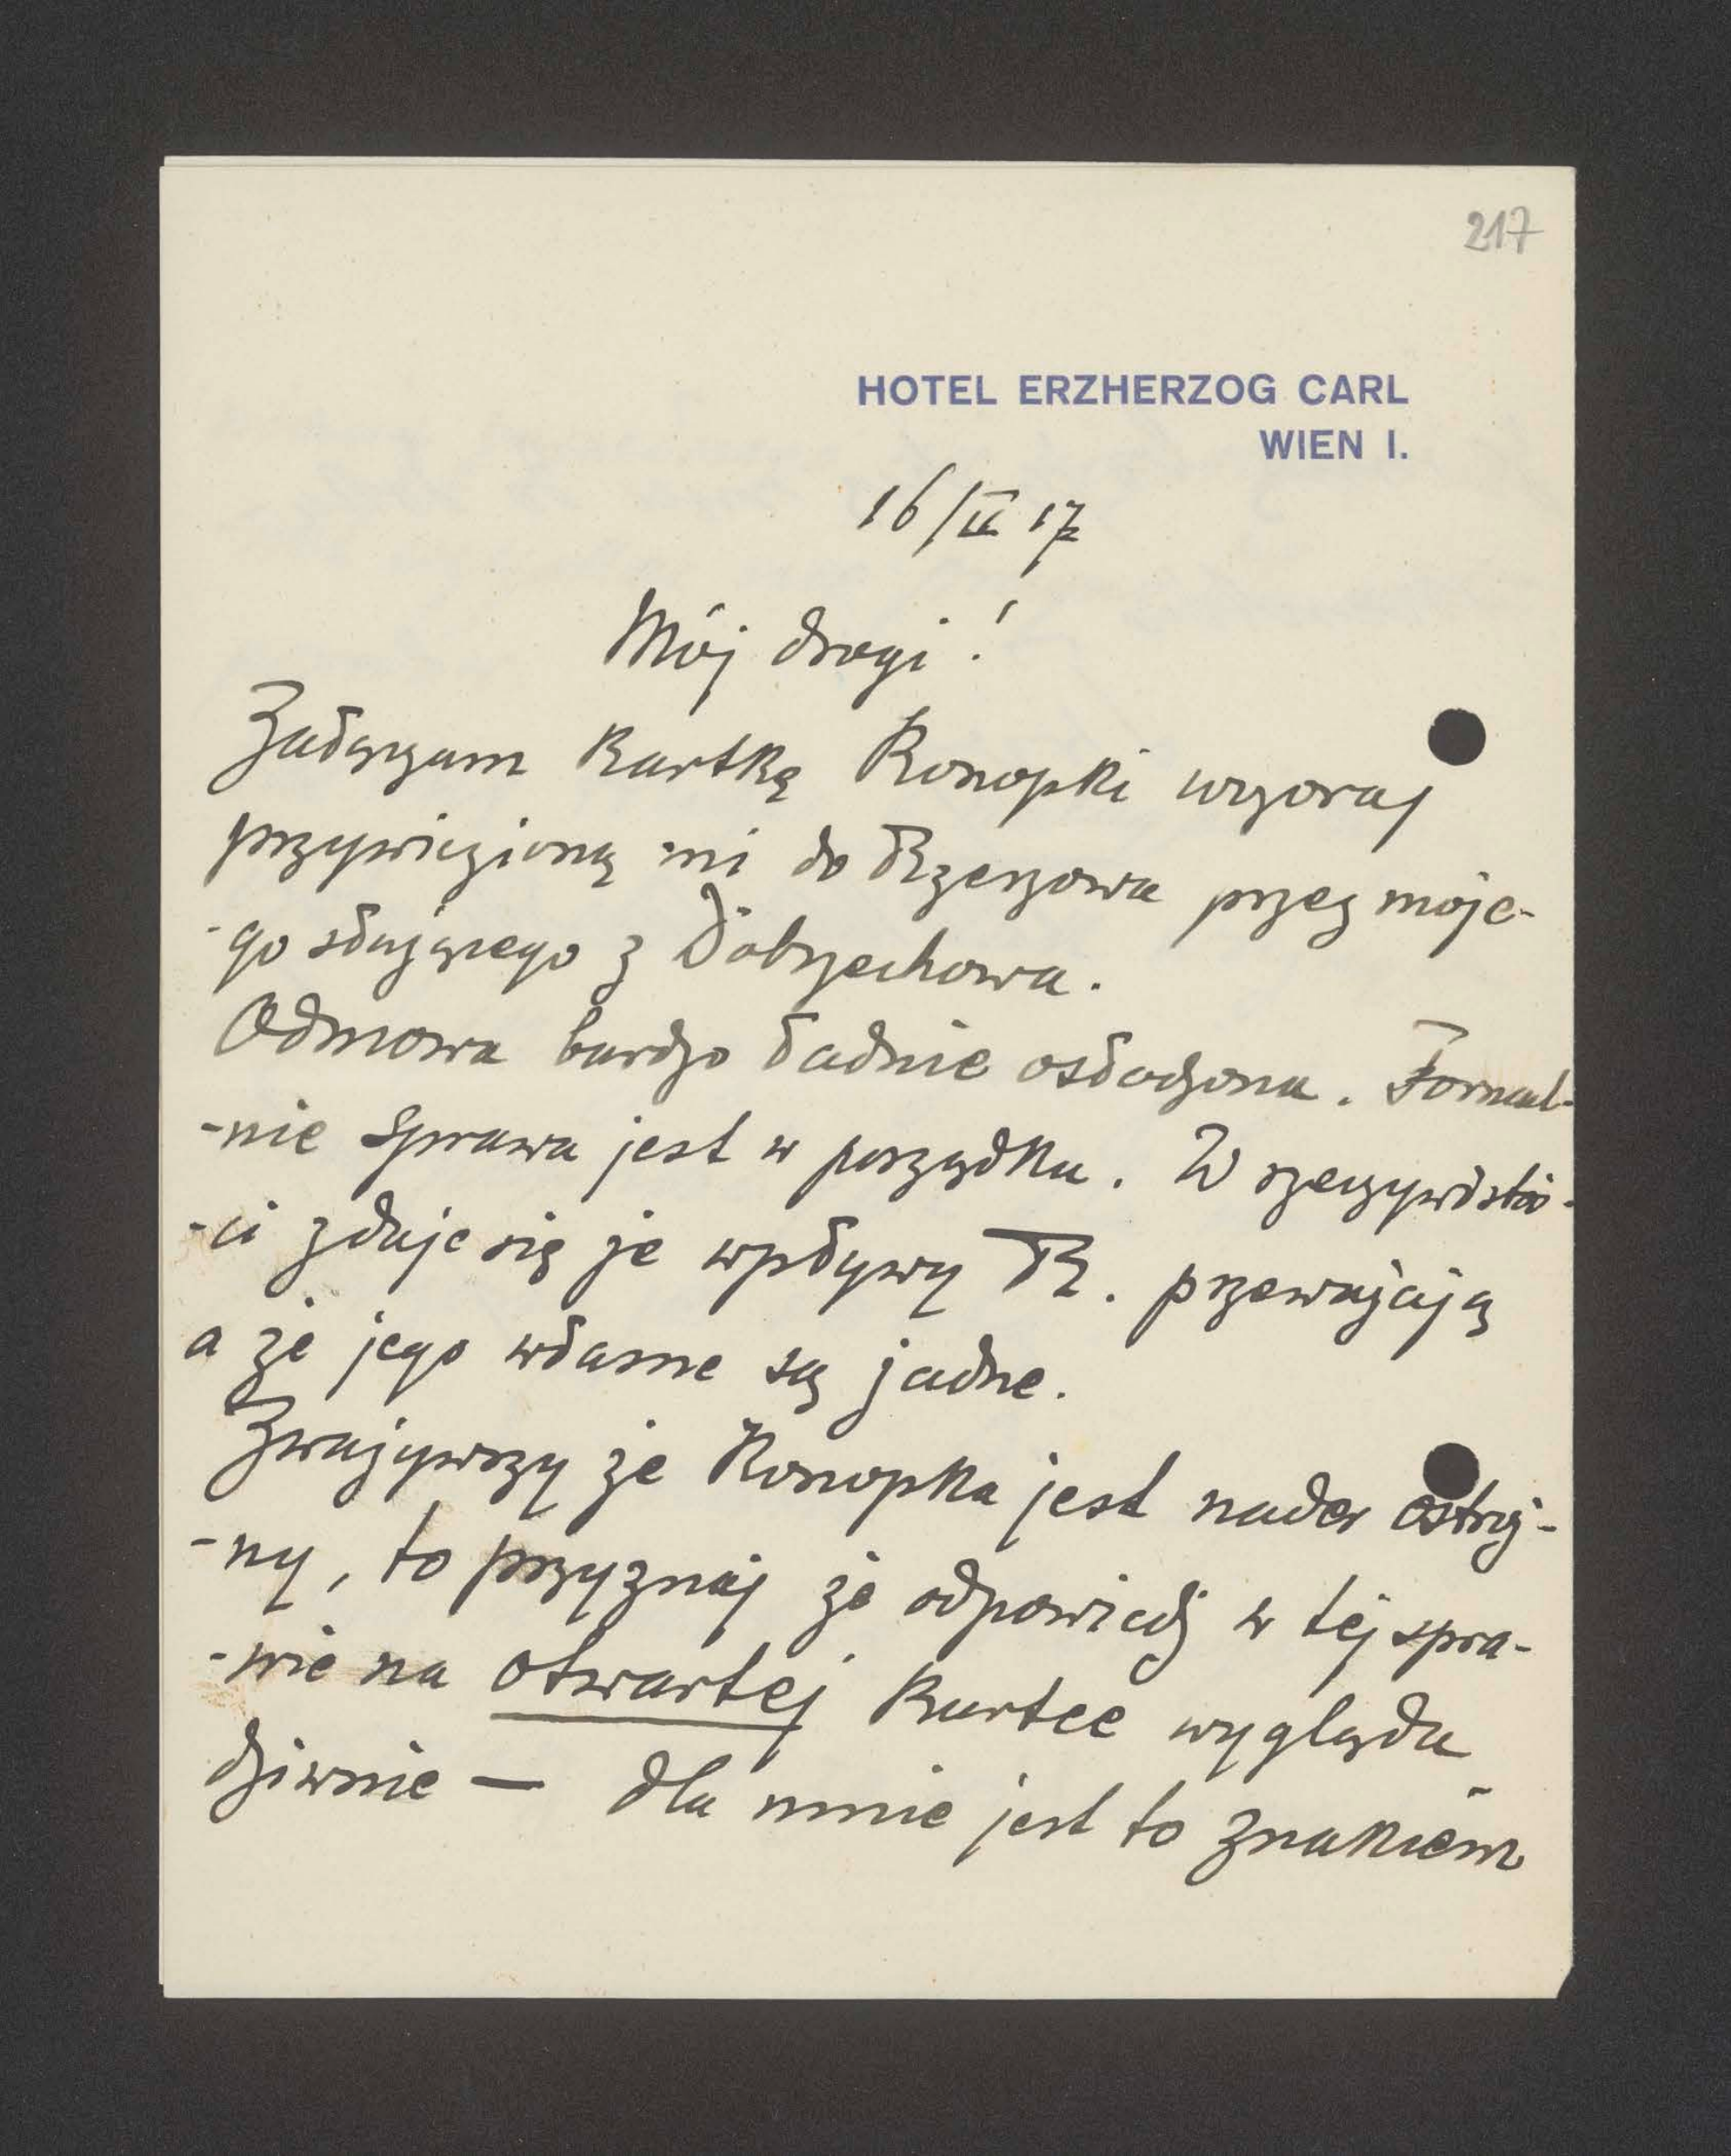 217
HOTEL ERZHERZOG CARL
WIEN I.
16/II 17
Mój drogi!
Załączam kartkę Konopki wczoraj
przywiezioną mi do Rzeszowa przez moje-
-go służącego z Dobrzechowa.
Odmowa bardzo ładnie osłodzona. Formal-
-nie sprawa jest w porządku. W rzeczywistoś-
-ci zdaje się że wpływy R. przeważają
a że jego własne są żadne.
Zważywszy że Konopka jest nader ostroż-
-ny, to przyznaj że odpowiedź w tej spra-
-wie na otwartej kartce wygląda
dziwnie — dla mnie jest to znakiem